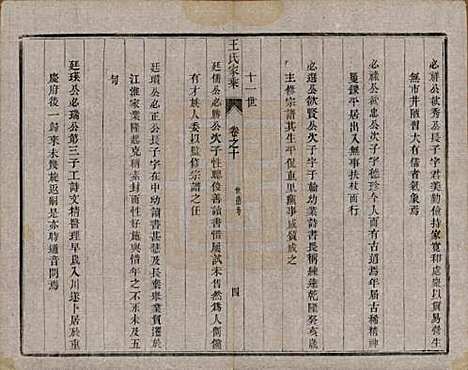 必勝公欽秀公長子字君美勤儉持家寬和處衆以貿易營生
無市井陋習大有儒者氣象焉
必祿公欽 公次子字德珍今人而有古道焉年屆古稀精神
矍鑠平居出入無事扶杖而行
必選公欽賢公次子字子翰幼業詩書長稱練達乾隆癸亥歲
主修宗譜其生平侃直里黨事咸質成之
十一世
王氏家乘
卷之十
四
廷儒公必勝公次子性聰俊善讀書惜屢試未售然為人多能
有才族人委以監修宗譜之任
廷瓖公必正公長子字在中幼讀書甚慧及長棄業貿遷於
江淮家業隆起克稱素封而性好施與惜年之不永未及五
旬
廷瑛公必瑞公第三子工詩文精醫理早歲入川遂卜居於重
慶府後一歸來未幾旋返嗣是亦時通音問焉